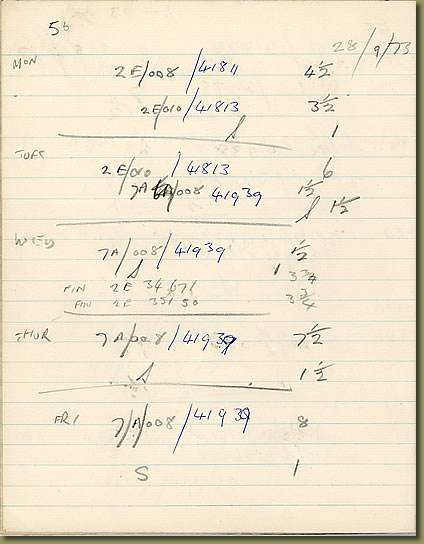 56
28/9/73
MON
2E/008/41811 4½
2E/010/41813 3½
S 1
TUES
2E/010/41813 6
7A/008 41939 1½
S 1½
WED
7A/008/41939 ½
S 1
FIN 2E 34671 3¾
FIN 2E 35150 3¾
THUR
7A/008/41939 7½
S 1½
FRI 7/A/008/41939 8
S 1